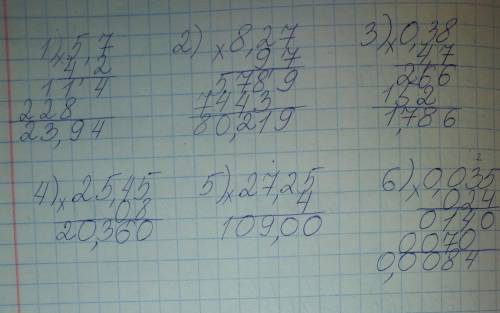 1) × 5,7
4 2
1 1 4
2 2 8
23,94
2) × 8,27
9 7
5 7 8 9
7 4 4 3
80,219
3) × 0,38
4 7
2 6 6
1 5 2
1,7 8 6
4) × 25,45
0,8
20,360
5) × 27,25
4
109,00
6) × 0,035
2
0 2 4
0 1 4 0
0 0 7 0
0,0 0 8 4